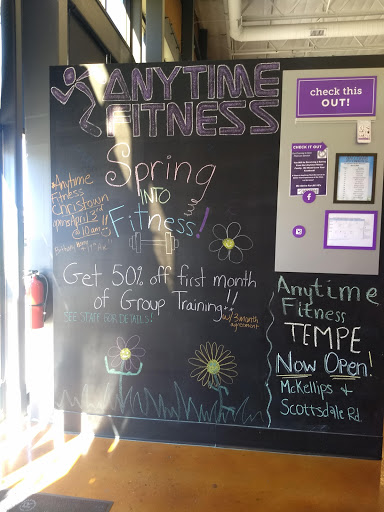 ANYTIME
FITNESS
Spring
INTO
Fitness!
Anytime
Fitness
Christown
opens April 13th
@ 10am!!
Get 50% off first month
of Group Training!!
w/ 3 month
agreement
SEE STAFF FOR DETAILS!
check this
OUT!
CHECK IT OUT
Anytime
Fitness
TEMPE
Now Open!
McKellips +
Scottsdale Rd.